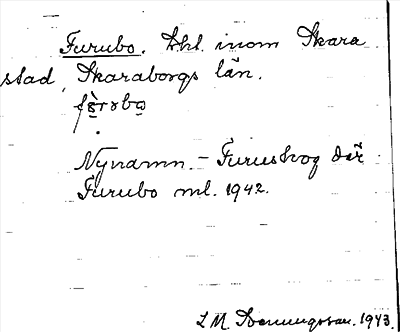 Furubo. Lhl. inom Skara
stad, Skaraborgs län.
Nynamn. – Furuskog där
Furubo ml. 1942.
L M. Svenungsson. 1943.